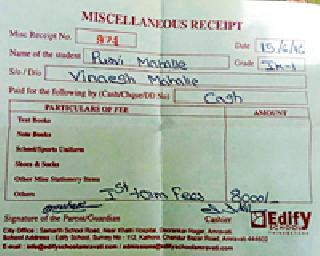 MISCELLANEOUS RECEIPT
Misc Receipt No. 974 Date 15/6/16
Name of the student Purvi Mahalle Grade
S/o / D/o Vinaesh Mahalle
Paid for the following by (Cash/Cheque/DD No) Cash
PARTICULARS OF FEE AMOUNT
Text Books
Note Books
School/Sports Uniform
Shoes & Socks
Other Misc Stationery Items
Others Ist term Fees 8000/-
Signature of the Parent/Guardian Cashier Edify
SCHOOL
City Office : Samarth School Road, Near Khatri Hospital, Deorankar Nagar, Amravati
School Address : Edify School, Survey No Kathora Chandur Bazar Road, Amravati 444602
E-mail : info@edifyschoolamravati.com / admissions@edifyschoolamravati.com